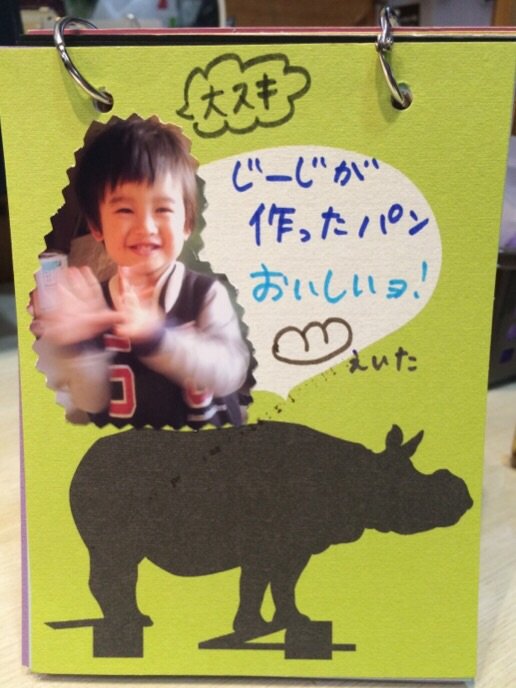 大スキ
じーじが
作ったパン
おいしいョ!
えいた